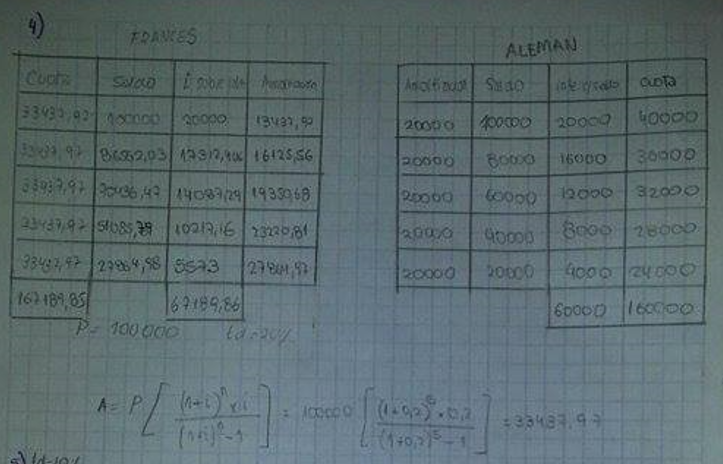 4)
FRANCES
ALEMAN
Cuota Saldo i sobre saldo Amortizacion
33437,97 100000 20000 13437,97
33437,97 86562,03 17312,406 16125,56
33437,97 70436,47 14087,29 19350,68
33437,97 51085,79 10217,16 23220,81
33437,97 27864,98 5573 27864,97
167189,85 67189,86
Amortizacion Saldo Cuota
20000 100000 20000 40000
20000 80000 16000 36000
20000 60000 12000 32000
20000 40000 8000 28000
20000 20000 4000 24000
60000 160000
P= 100000 id=20%
A= P [ (1+i)^n × i / (1+i)^n - 1 ] = 100000 [ (1+0,2)^5 × 0,2 / (1+0,2)^5 - 1 ] = 33437,97